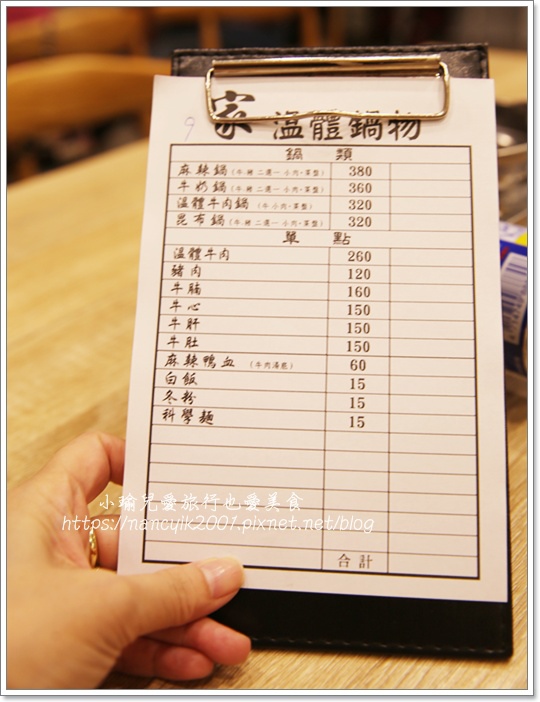 家 溫體鍋物
9
鍋類
麻辣鍋(牛.豬 二選一 小肉+菜盤) 380
牛奶鍋(牛.豬 二選一 小肉+菜盤) 360
溫體牛肉鍋 (牛 小肉+菜盤) 320
昆布鍋(牛.豬 二選一 小肉+菜盤) 320
單點
溫體牛肉 260
豬肉 120
牛腩 160
牛心 150
牛肝 150
牛肚 150
麻辣鴨血 (牛肉湯底) 60
白飯 15
冬粉 15
科學麵 15
小瑜兒愛旅行也愛美食
https://nancylk2001.pixnet.net/blog
合計